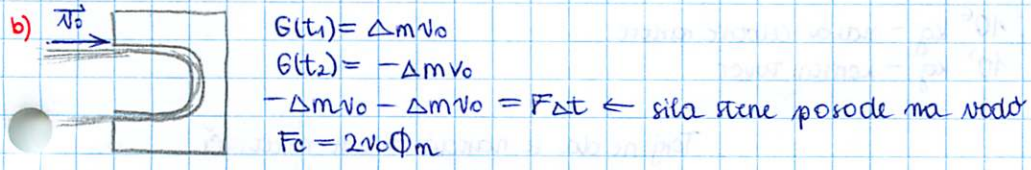 b) v₀
G(t₁) = Δmv₀
G(t₂) = -Δmv₀
-Δmv₀ - Δmv₀ = FΔt ← sila stene posode na vodo
Fc = 2v₀Φm